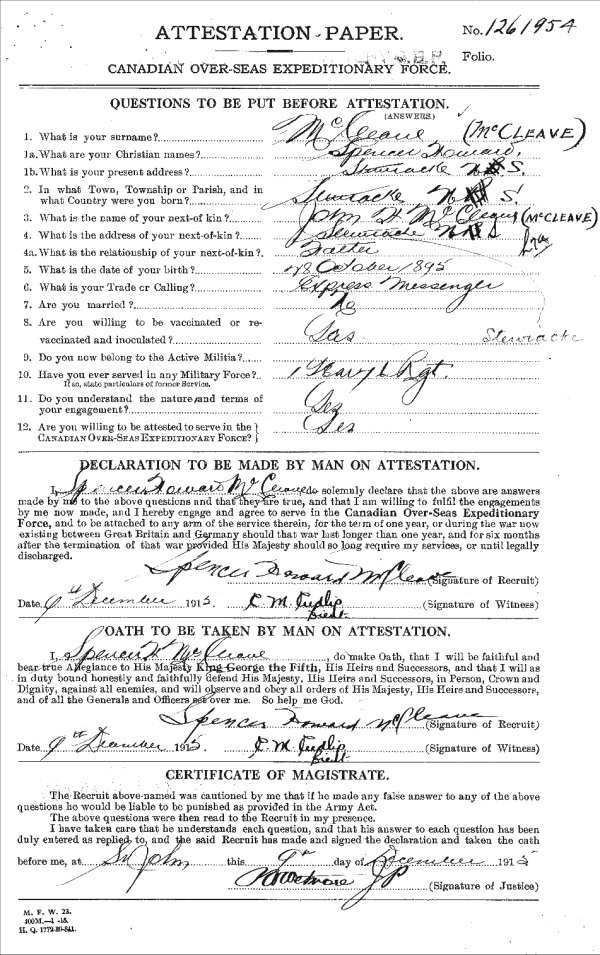 ATTESTATION PAPER.
No. 1261954
Folio.
CANADIAN OVER-SEAS EXPEDITIONARY FORCE.
QUESTIONS TO BE PUT BEFORE ATTESTATION.
(ANSWERS.)
1. What is your surname? McCleave (McCLEAVE)
1a. What are your Christian names? Spencer Howard
1b. What is your present address? Stewiacke N.S.
2. In what Town, Township or Parish, and in
what Country were you born? Stewiacke N.S.
3. What is the name of your next-of kin? John H. McCleave (McCLEAVE)
4. What is the address of your next-of-kin? Stewiacke N S
4a. What is the relationship of your next-of-kin? Father
5. What is the date of your birth? 28 October 1895
6. What is your Trade or Calling? Express Messenger
7. Are you married? No
8. Are you willing to be vaccinated or re-
vaccinated and inoculated? Yes Stewiacke
9. Do you now belong to the Active Militia?
10. Have you ever served in any Military Force? Regt.
If so, state particulars of former Service.
11. Do you understand the nature and terms of
your engagement? Yes
12. Are you willing to be attested to serve in the
CANADIAN OVER-SEAS EXPEDITIONARY FORCE? Yes
DECLARATION TO BE MADE BY MAN ON ATTESTATION.
I, Spencer Howard McCleave do solemnly declare that the above are answers
made by me to the above questions and that they are true, and that I am willing to fulfil the engagements
by me now made, and I hereby engage and agree to serve in the Canadian Over-Seas Expeditionary
Force, and to be attached to any arm of the service therein, for the term of one year, or during the war now
existing between Great Britain and Germany should that war last longer than one year, and for six months
after the termination of that war provided His Majesty should so long require my services, or until legally
discharged.
Spencer Howard McCleave (Signature of Recruit)
Date 9th December 1915 C M Lieut (Signature of Witness)
OATH TO BE TAKEN BY MAN ON ATTESTATION.
I, Spencer H McCleave, do make Oath, that I will be faithful and
bear true Allegiance to His Majesty King George the Fifth, His Heirs and Successors, and that I will as
in duty bound honestly and faithfully defend His Majesty, His Heirs and Successors, in Person, Crown and
Dignity, against all enemies, and will observe and obey all orders of His Majesty, His Heirs and Successors,
and of all the Generals and Officers set over me. So help me God.
Spencer Howard McCleave (Signature of Recruit)
Date 9th December 1915 C M Lieut (Signature of Witness)
CERTIFICATE OF MAGISTRATE.
The Recruit above-named was cautioned by me that if he made any false answer to any of the above
questions he would be liable to be punished as provided in the Army Act.
The above questions were then read to the Recruit in my presence.
I have taken care that he understands each question, and that his answer to each question has been
duly entered as replied to, and the said Recruit has made and signed the declaration and taken the oath
before me, at St John this 9th day of December 1915
Wetmore JP (Signature of Justice)
M. F. W. 23.
H. Q. 1772-39-841.